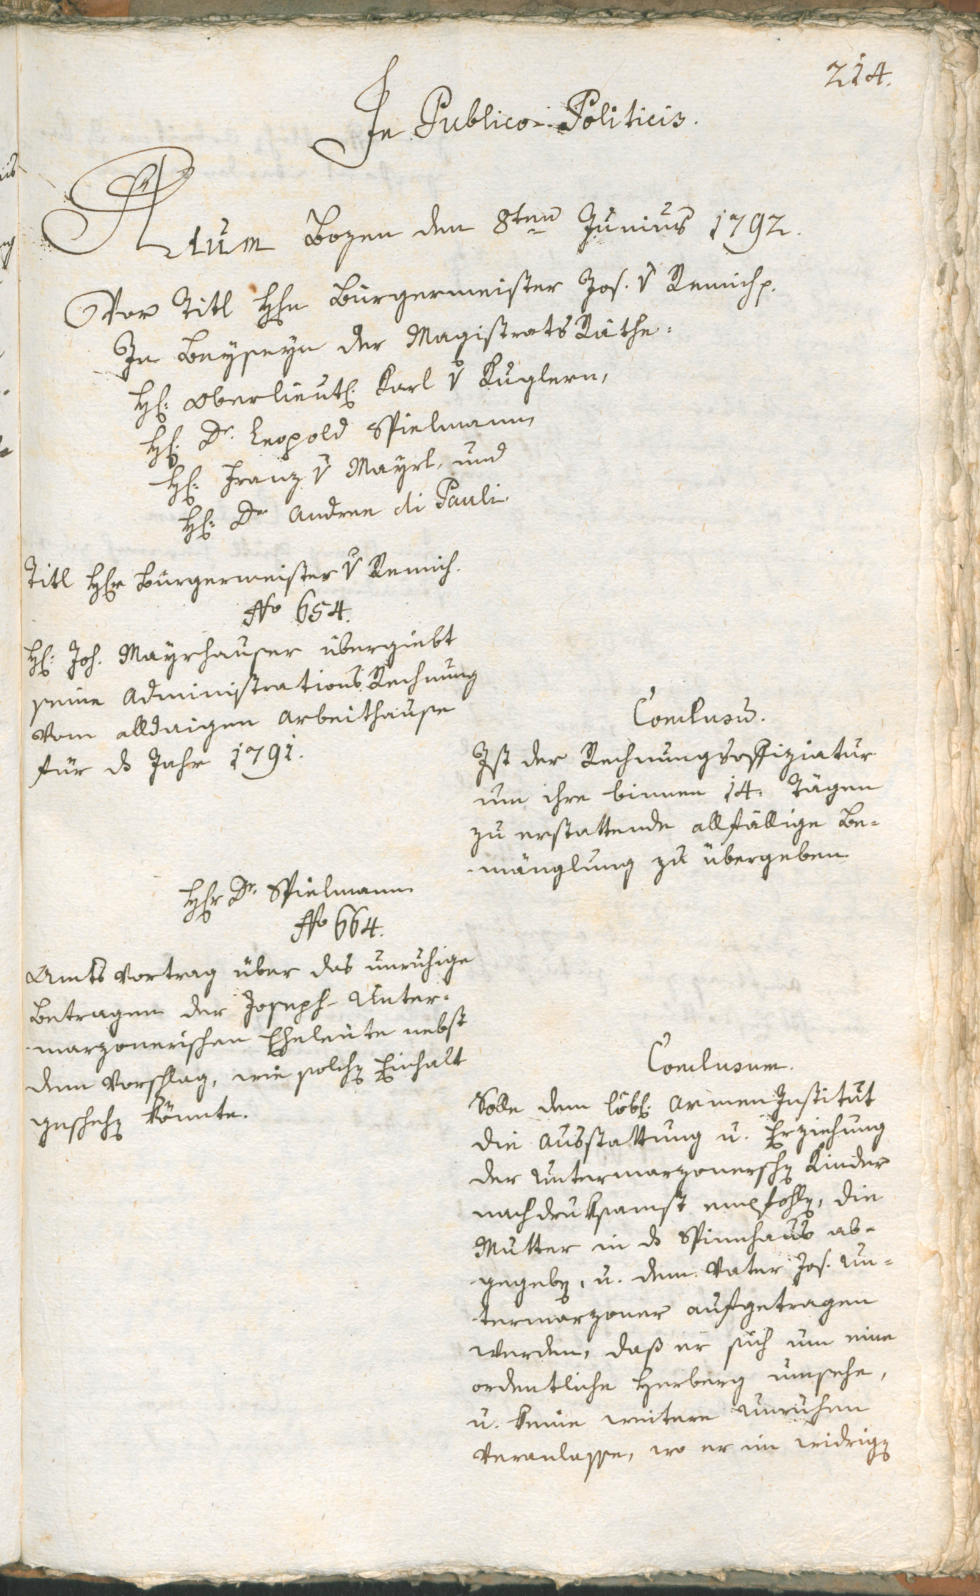 214.
In Publico-Politicis.
Actum Bozen den 8ten Junius 1792.
Vor Titl Hhn Bürgermeister Jos. v Remich p.
In Beyseyn der Magistrats Räthe.
H: Oberlieut: Karl v Kuglern,
H: Dr. Leopold Spielmann,
H: Franz v Mayrl, und
H: Dr Andree di Pauli
Titl Hhr Bürgermeister v Remich.
No 654.
H: Joh. Mayrhauser übergiebt
seine Administrations Rechnung
vom alldaigen Arbeithause
für ds Jahr 1791.
Conclusū.
Ist der Rechnungsoffiziatur
um ihre binnen 14. Tägen
zu erstattende allfällige Be-
mänglung zu übergeben
Hhr Dr. Spielmann
No 664.
Amts Vortrag über das unruhige
Betragen der Joseph-Unter-
marzonerischen Eheleute nebst
dem Vorschlag, wie solchen Einhalt
geschehen könnte.
Conclusum.
Solle dem löbl: Armen Institut
die Ausstattung u. Erziehung
der Untermarzonerschen Kinder
nachdruksamst empfohlen, die
Mutter in ds Spinnhaus ab-
gegeben, u. dem Vater Jos. Un-
termarzoner aufgetragen
werden, daß er sich um eine
ordentliche Herberg umsehe,
u. keine weitere Unruhen
veranlasse, wo er im widrigen